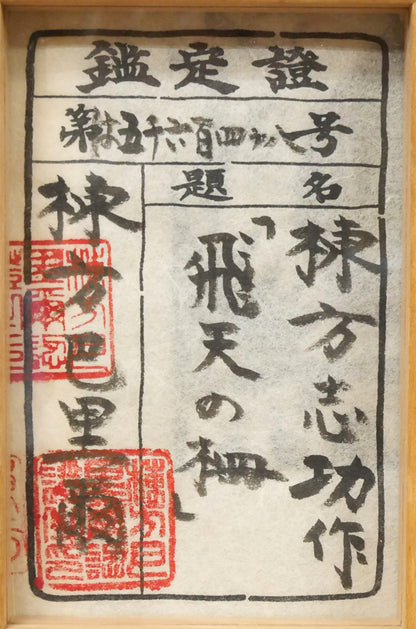 鑑定證
第は五千六百四十八号
題名
棟方志功作
「飛天の柵」
棟方巴里爾